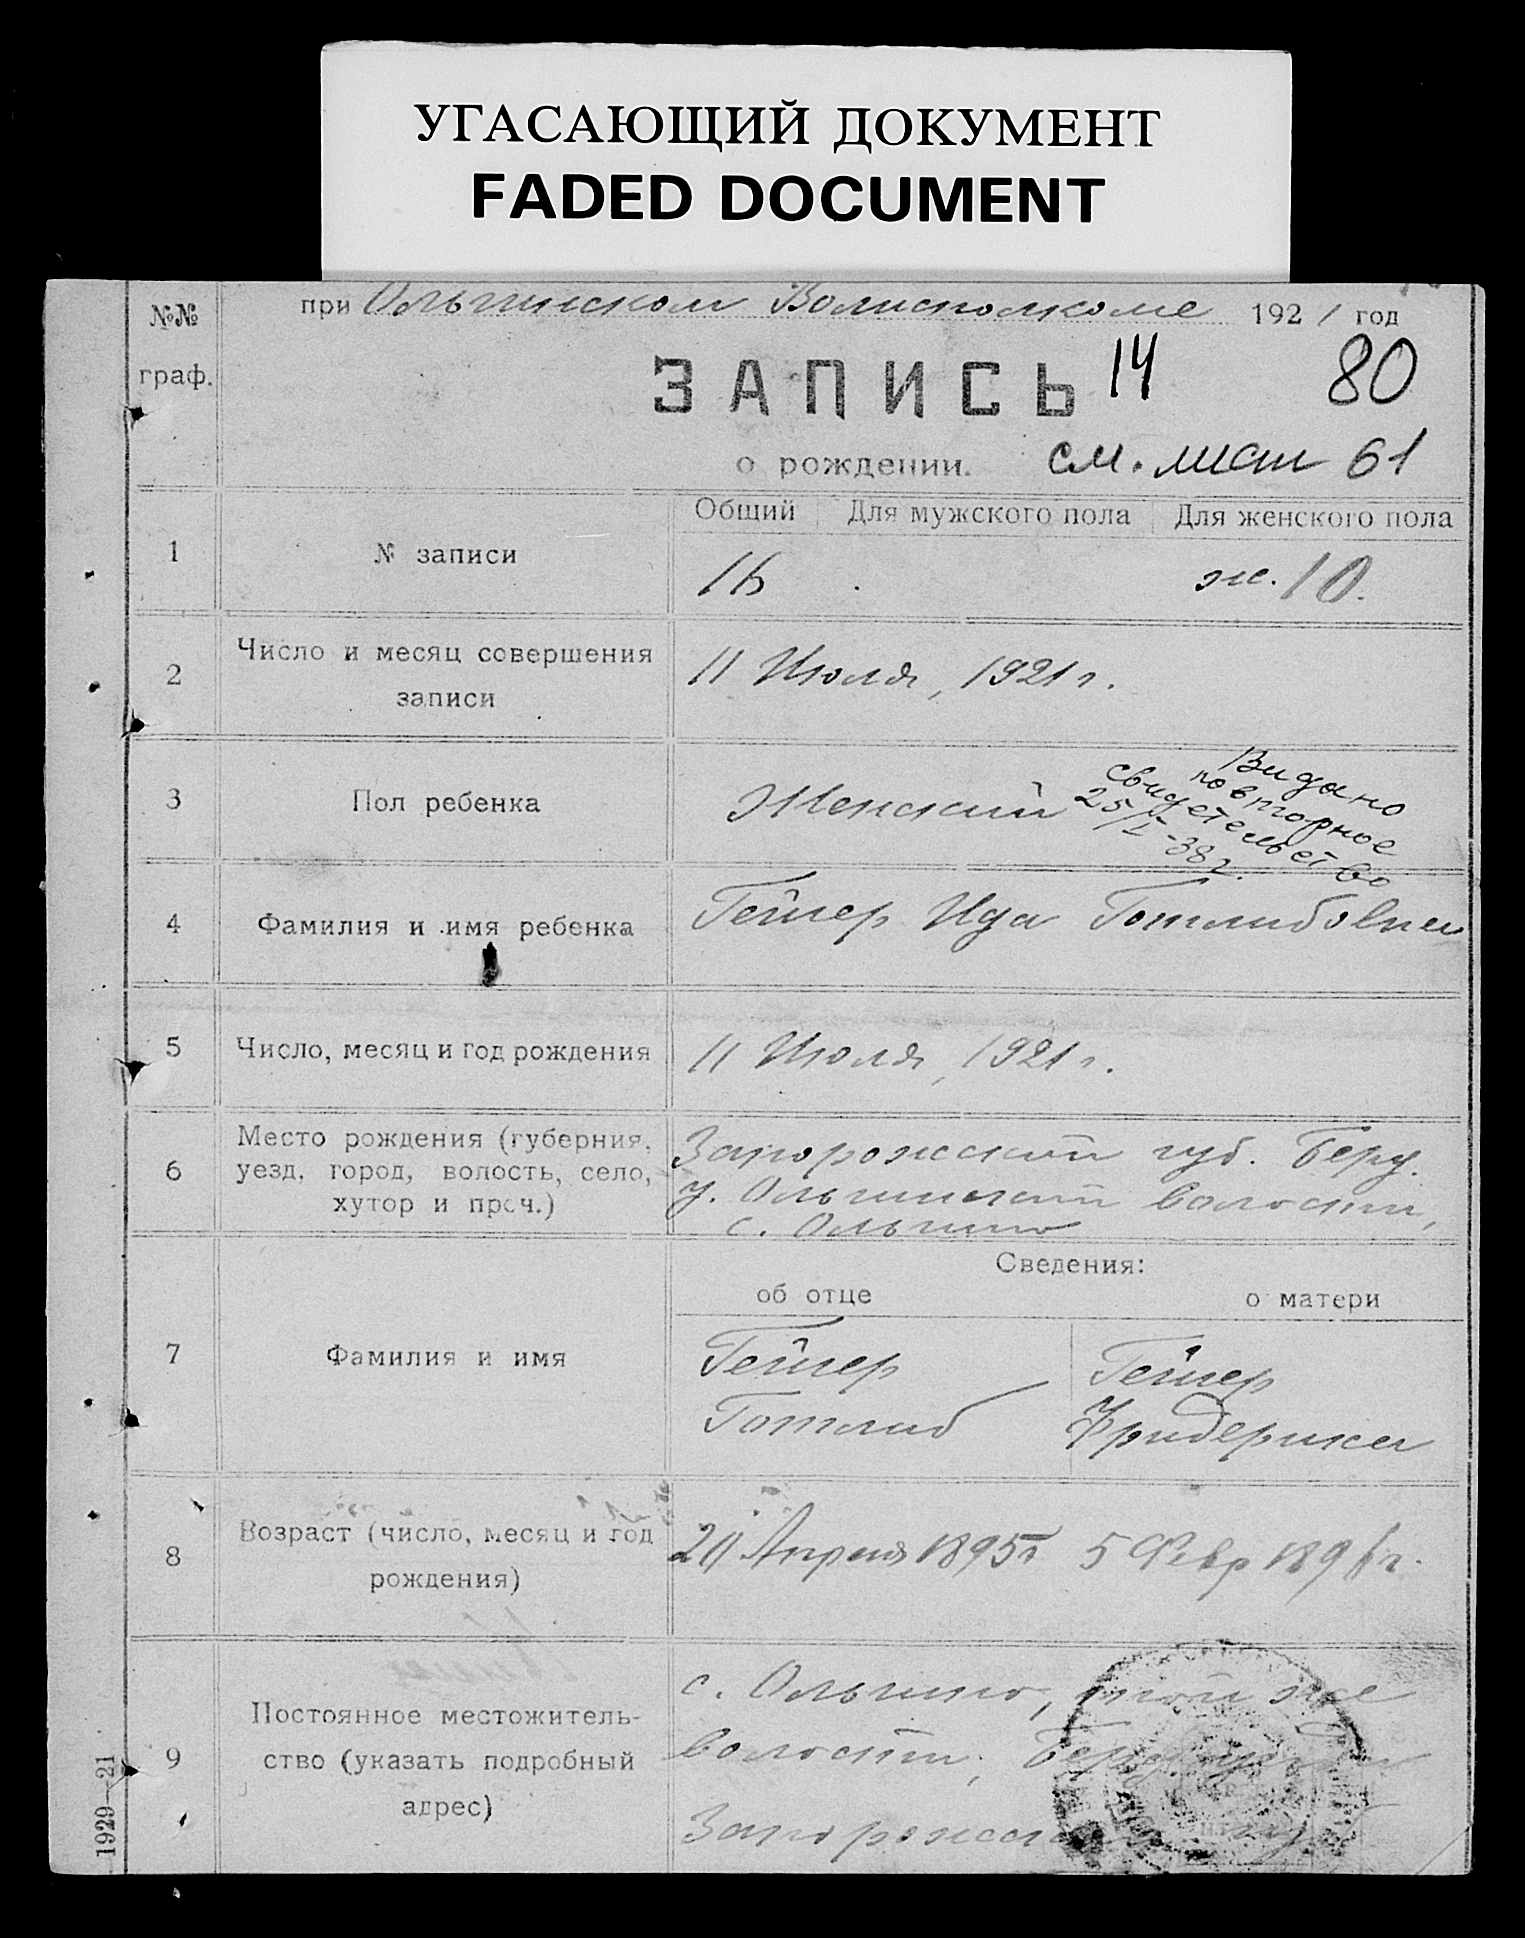 УГАСАЮЩИЙ ДОКУМЕНТ
FADED DOCUMENT
№№ граф.
при Ольгинском Волисполкоме 1921 год
ЗАПИСЬ 14 80
о рождении. см. лист 61
Общий Для мужского пола Для женского пола
1 № записи 16 ж. 10.
2 Число и месяц совершения
записи
11 Июля, 1921 г.
3 Пол ребенка Женский
Видано
повторное
свидетельство
25/I-38 г.
4 Фамилия и имя ребенка Гейер Ида Готлибовна
5 Число, месяц и год рождения 11 Июля, 1921 г.
6 Место рождения (губерния,
уезд, город, волость, село,
хутор и проч.)
Запорожский губ. Берд.
у. Ольгинской волости,
с. Ольгино
Сведения:
об отце о матери
7 Фамилия и имя
Гейер Гейер
Готлиб Фридерика
8 Возраст (число, месяц и год
рождения)
Апреля 1895 г 5 Февр 189 г.
9 Постоянное местожитель-
ство (указать подробный
адрес)
с. Ольгино, той же
волости, Берд.
1929—21